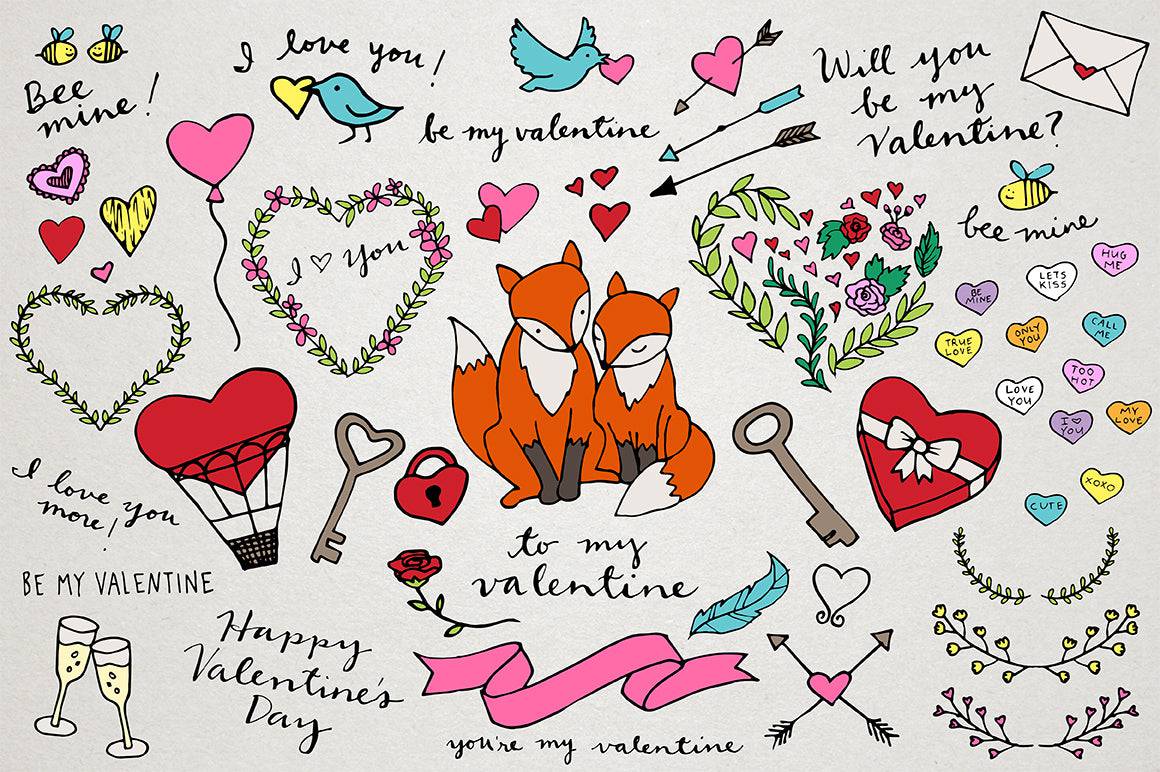 Bee
mine!
I love you!
be my valentine
Will you
be my
Valentine?
bee mine
I ♡ You
HUG
ME
LETS
KISS
BE
MINE
ONLY
YOU
CALL
ME
TRUE
LOVE
TOO
HOT
LOVE
YOU
I ♡
YOU
MY
LOVE
XOXO
CUTE
I love you
more!
to my
valentine
BE MY VALENTINE
Happy
Valentine's
Day
you're my valentine